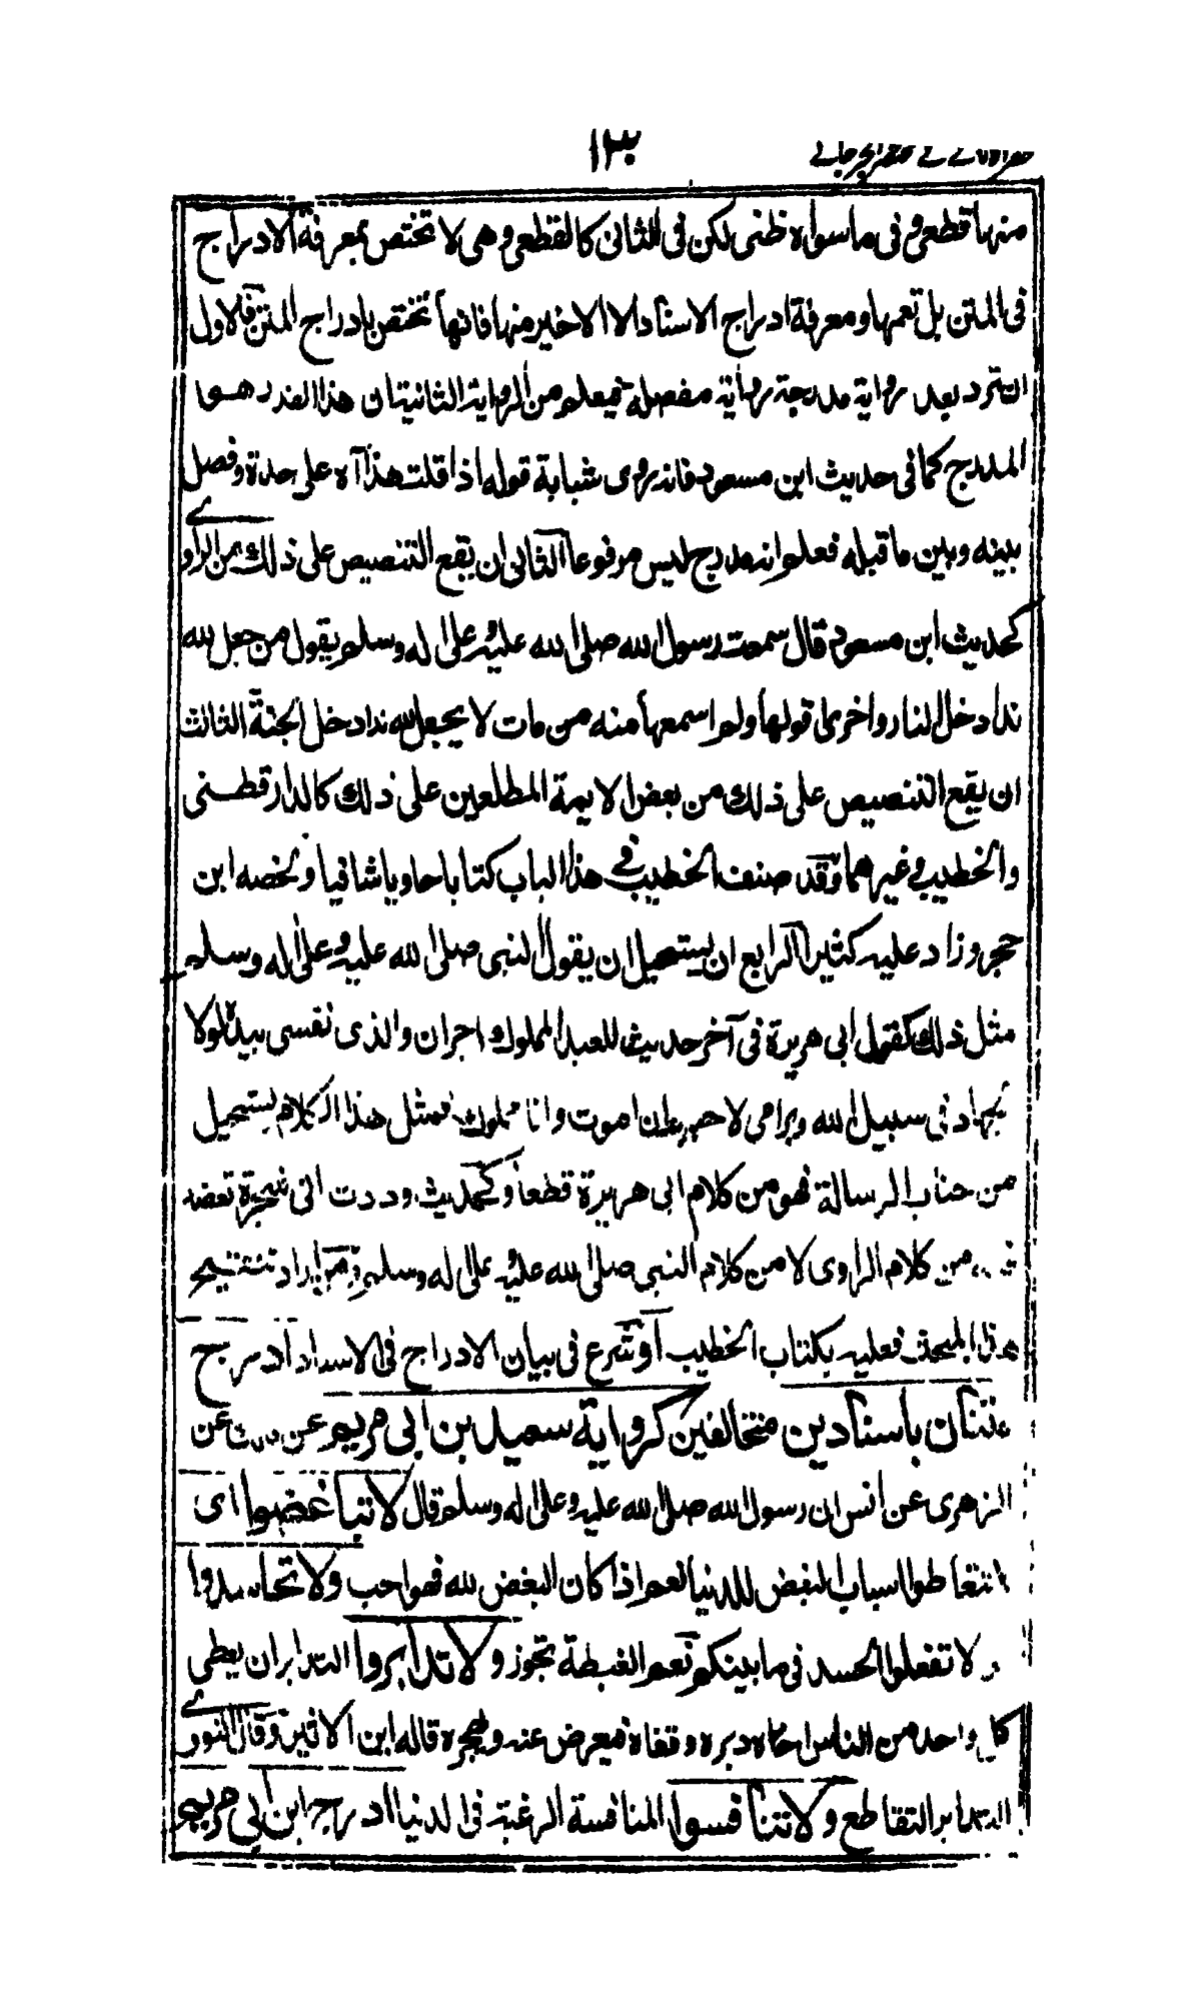 ١٣٠
منها قطعى وفى ما سواه ظنى لكن فى الثانى كالقطعى وهى لا تختص بمعرفة الادراج
فى المتن بل تعمها ومعرفة ادراج الاسناد الا الاخير منها فانها تختص بادراج المتن فالاول
ان ترد بعد رواية مدرجة رواية مفصلة فيعلم من الرواية الثانية ان هذا القدر هو
المدرج كما فى حديث ابن مسعود فانه روى شبابة قوله اذا قلت هذا آه على حدة وفصل
بينه وبين ما قبله فعلم انه مدرج ليس مرفوعا الثانى ان يقع التنصيص على ذلك من الراوى
كحديث ابن مسعود قال سمعت رسول الله صلى الله عليه وعلى اله وسلم يقول من جعل لله
ندا دخل النار واخرى اقولها ولم اسمعها منه من مات لا يجعل لله ندا دخل الجنة الثالث
ان يقع التنصيص على ذلك من بعض الايمة المطلعين على ذلك كالدارقطنى
والخطيب وغيرهما وقد صنف الخطيب فى هذا الباب كتابا حاويا شافيا ولخصه ابن
حجر وزاد عليه كثيرا الرابع ان يستحيل ان يقول النبى صلى الله عليه وعلى اله وسلم
مثل ذلك كقول ابى هريرة فى آخر حديث للعبد المملوك اجران والذى نفسى بيده لولا
الجهاد فى سبيل الله وبر امى لاحببت ان اموت وانا مملوك فمثل هذا الكلام يستحيل
من جناب الرسالة فهو من كلام ابى هريرة قطعا وكحديث وددت انى شجرة تعضد
من كلام الراوى لا من كلام النبى صلى الله عليه وعلى اله وسلم ومن اراد تنقيح
هذا المبحث فعليه بكتاب الخطيب آه وشرع فى بيان الادراج فى الاسناد او ادرج
متنان باسنادين مختالفين كرواية سعيد بن ابى مريم عن مالك عن
الزهرى عن انس ان رسول الله صلى الله عليه وعلى اله وسلم قال لا تباغضوا اى
لا تتعاطوا اسباب البغض للدنيا نعم اذا كان البغض لله فهو واجب ولا تحاسدوا
لا تفعلوا الحسد فى ما بينكم نعم الغبطة تجوز ولا تدابروا التدابر ان يعطى
كل واحد من الناس اخاه دبره وقفاه فيعرض عنه ويهجره قاله ابن الاثير وقال النووى
التدابر التقاطع ولا تنافسوا المنافسة الرغبة فى الدنيا ادرج ابن ابى مريم